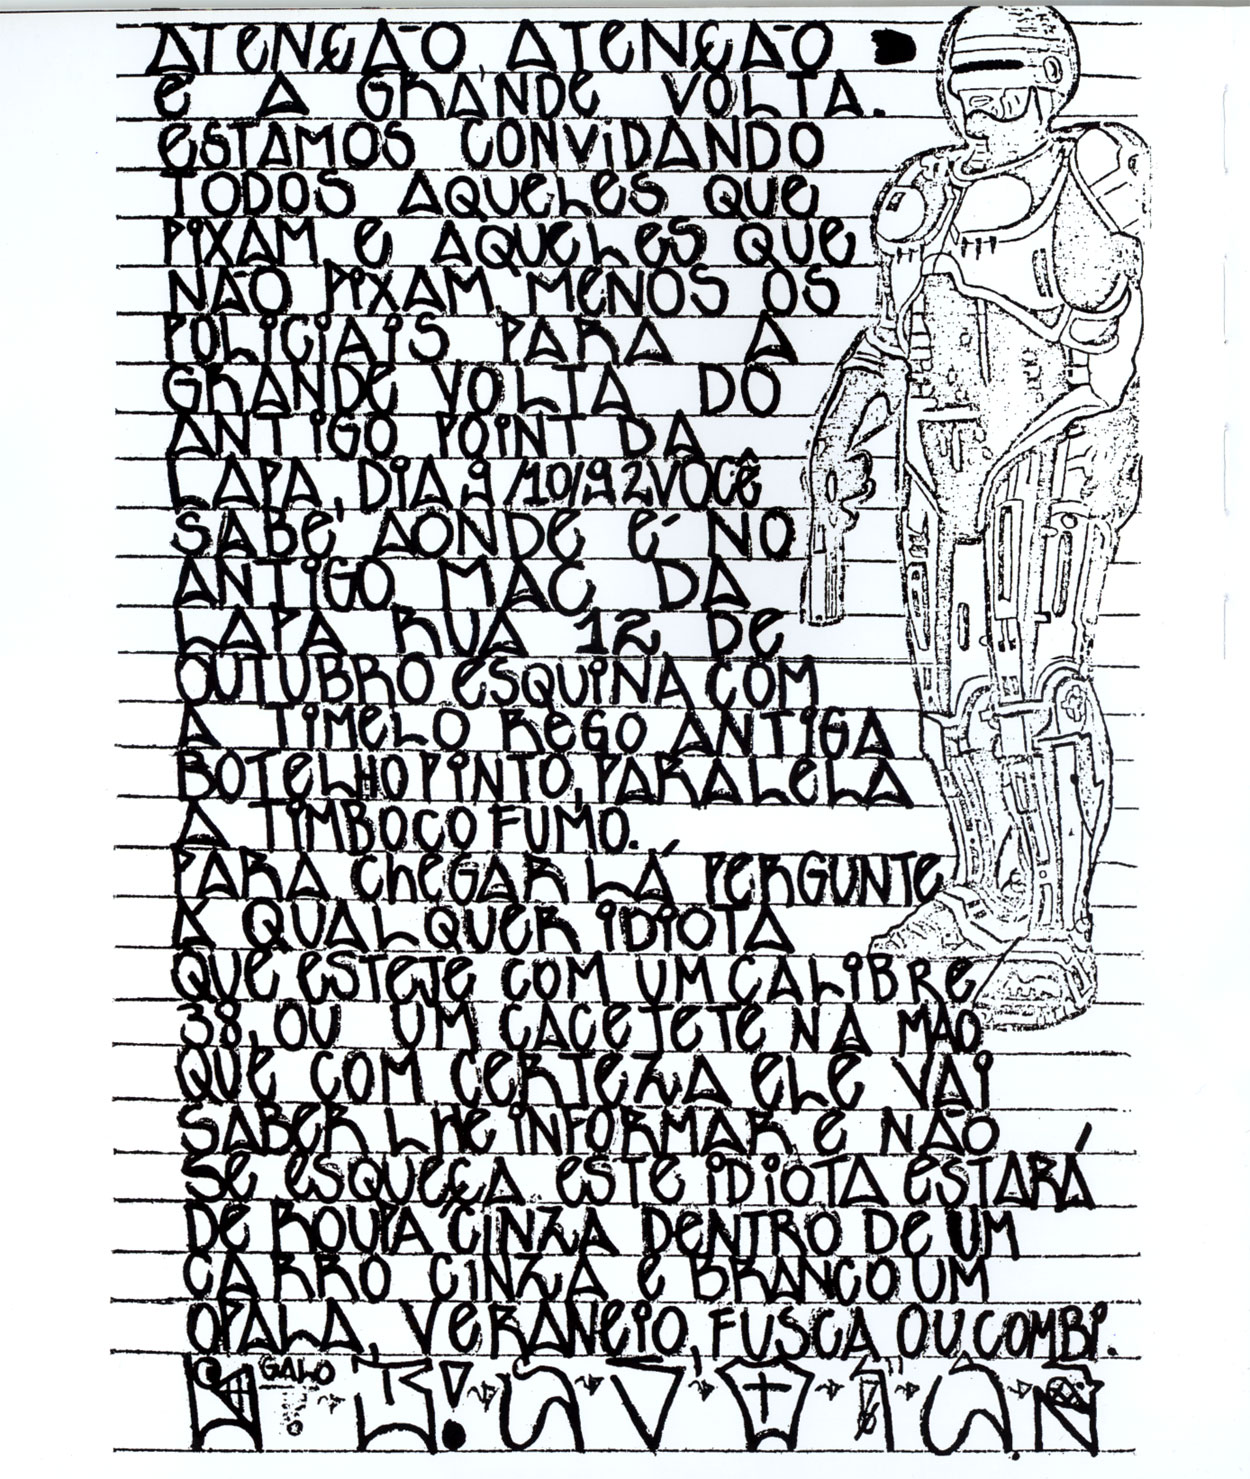 ATENÇÃO, ATENÇÃO
E A GRANDE VOLTA.
ESTAMOS CONVIDANDO
TODOS AQUELES QUE
PIXAM E AQUELES QUE
NÃO PIXAM, MENOS OS
POLICIAIS PARA A
GRANDE VOLTA DO
ANTIGO POINT DA
LAPA, DIA 9/10/92 VOCÊ
SABE AONDE É NO
ANTIGO MAC DA
LAPA RUA 12 DE
OUTUBRO ESQUINA COM
A TIMELO REGO ANTIGA
BOTELHO PINTO, PARALELA
A TIMBOCO FUMO.
PARA CHEGAR LÁ PERGUNTE
A QUALQUER IDIOTA
QUE ESTEJE COM UM CALIBRE
38, OU UM CACETETE NA MÃO
QUE COM CERTEZA ELE VAI
SABER LHE INFORMAR E NÃO
SE ESQUEÇA ESTE IDIOTA ESTARÁ
DE ROUPA CINZA DENTRO DE UM
CARRO CINZA E BRANCO UM
OPALA, VERANEIO, FUSCA OU COMBI.
GALO